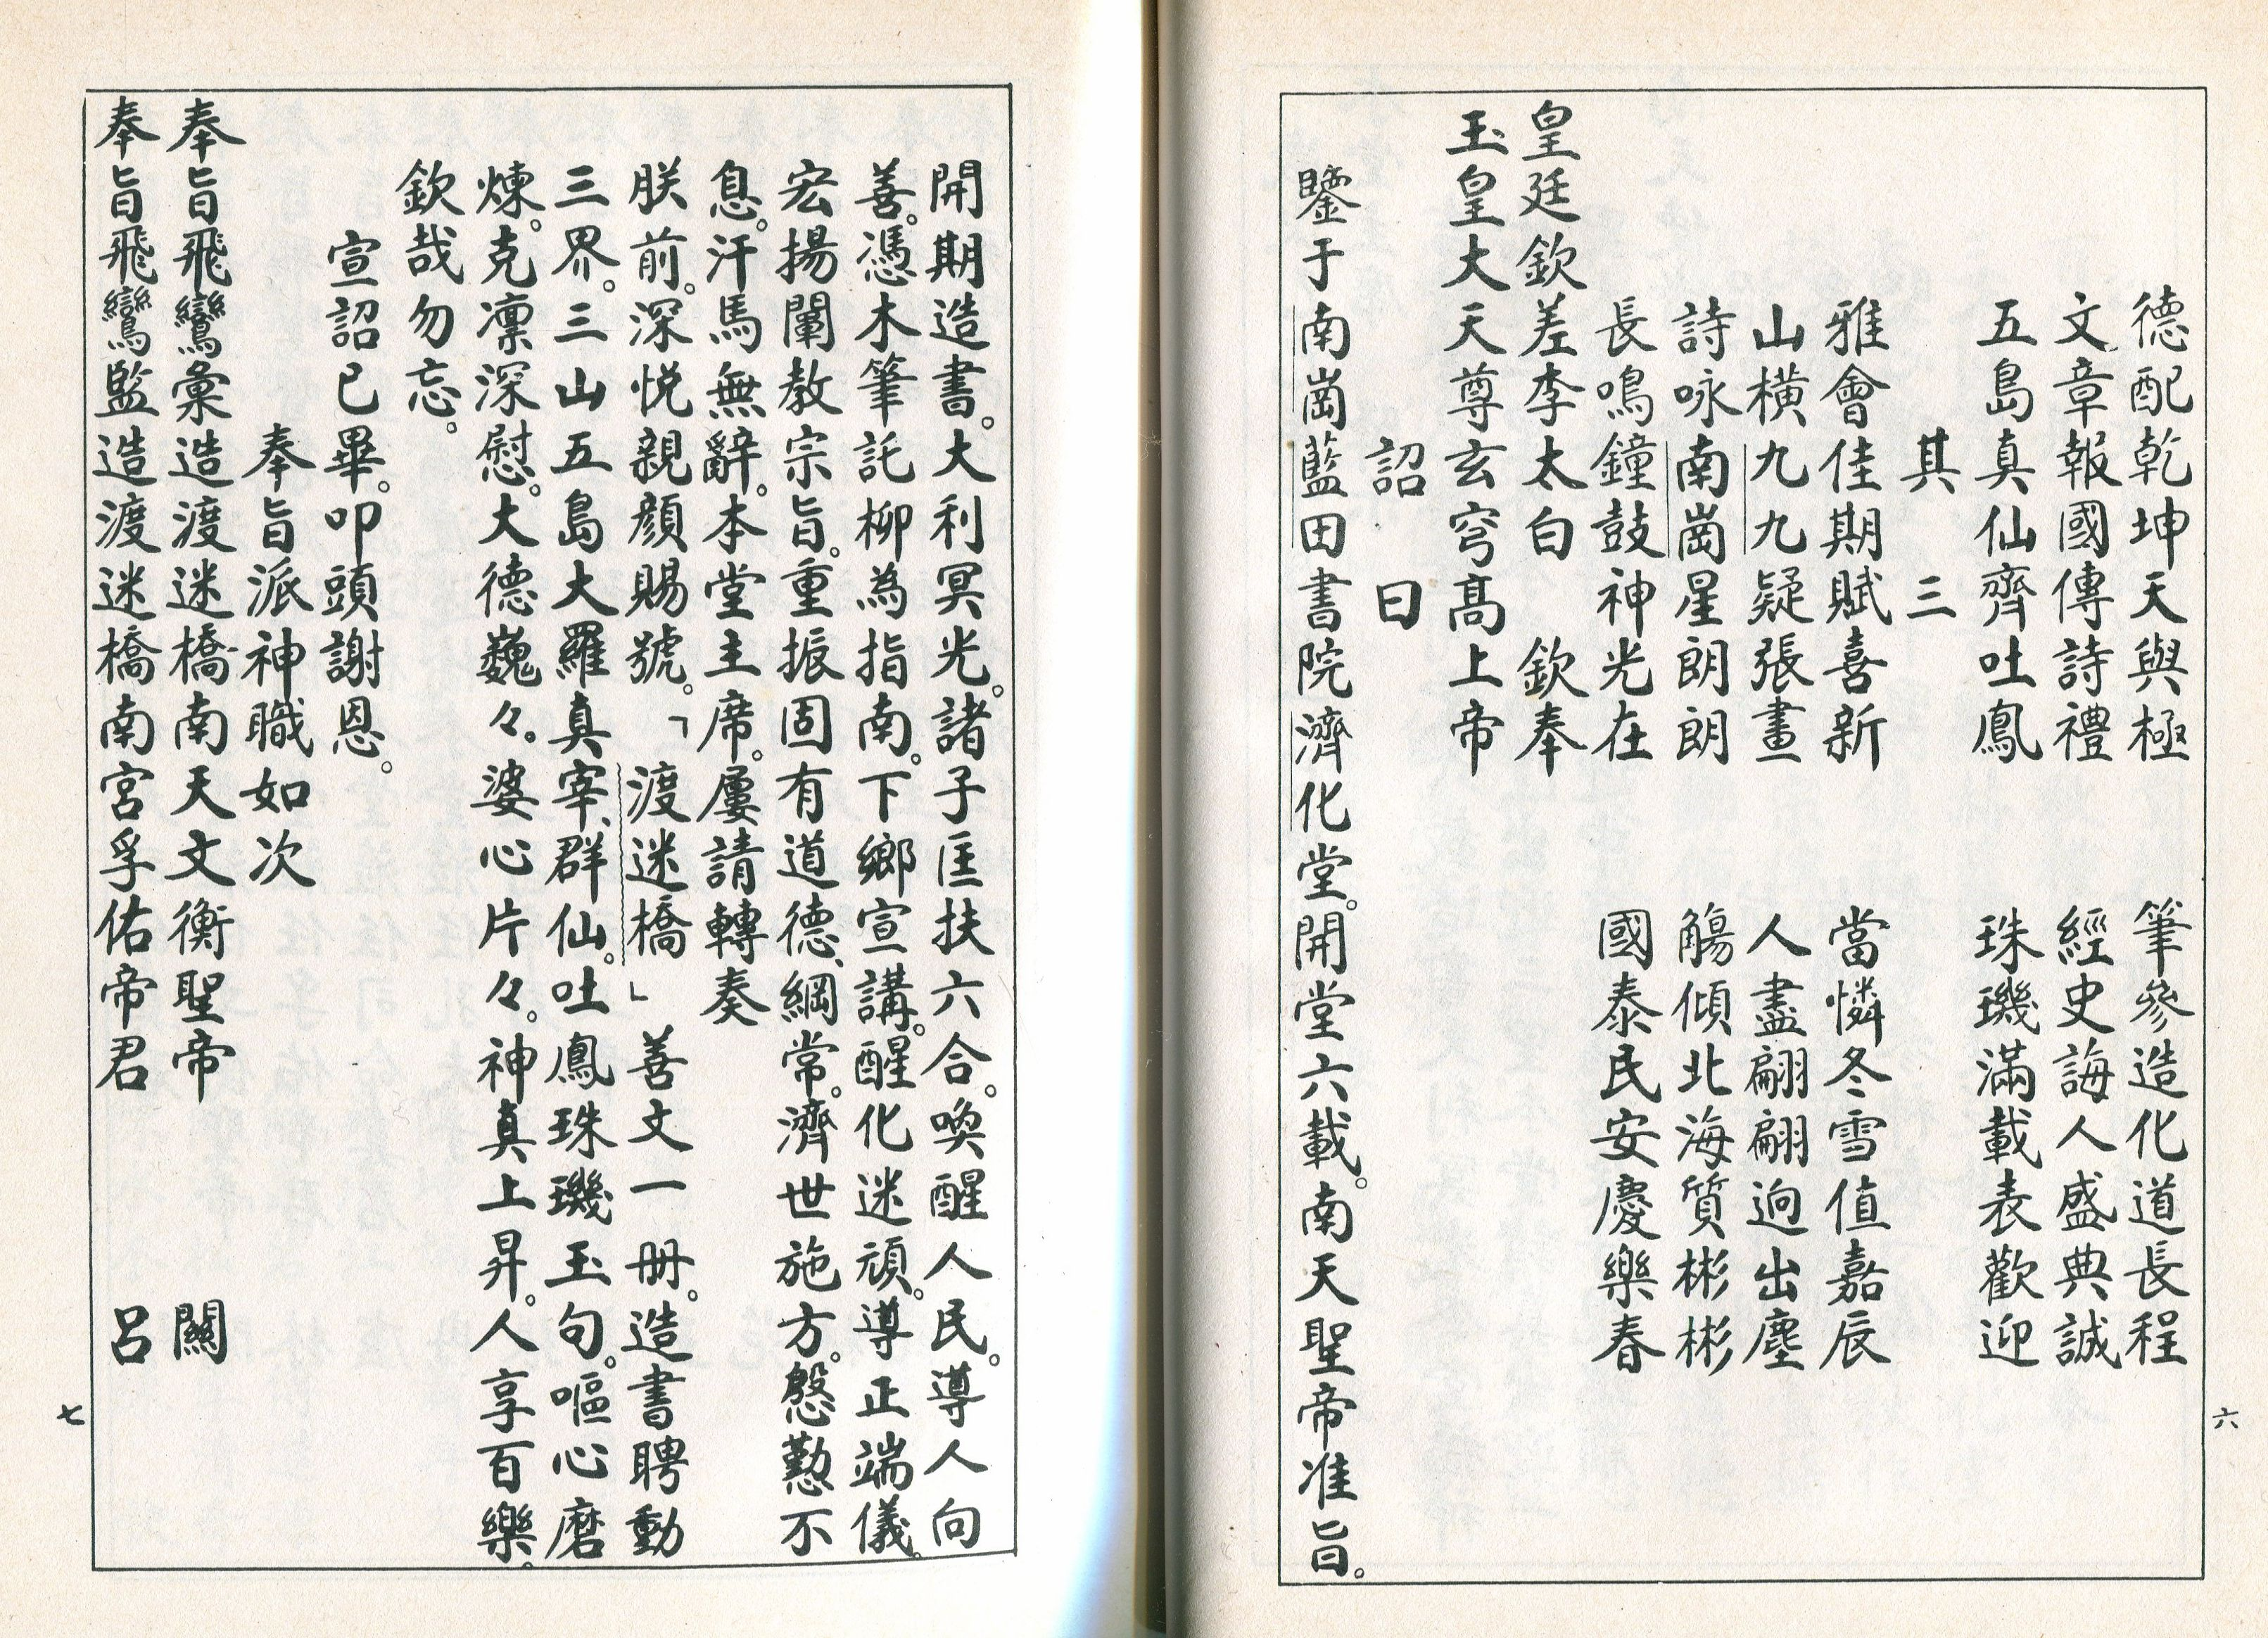 德配乾坤天與極　筆參造化道長程
文章報國傳詩禮　經史誨人盛典誠
五島真仙齊吐鳳　珠璣滿載表歡迎
其三
雅會佳期賦喜新　當憐冬雪值嘉辰
山橫九九疑張畫　人盡翩翩迥出塵
詩咏南崗星朗朗　觴傾北海質彬彬
長鳴鐘鼓神光在　國泰民安慶樂春
皇廷欽差李太白　欽奉
玉皇大天尊玄穹高上帝
詔曰
鑒于南崗藍田書院濟化堂。開堂六載。南天聖帝准旨。
六
開期造書。大利冥光。諸子匡扶六合。喚醒人民。導人向
善。憑木筆託柳為指南。下鄉宣講。醒化迷頑。導正端儀。
宏揚闡教宗旨。重振固有道德、綱常。濟世施方。慇懃不
息。汗馬無辭。本堂主席。屢請轉奏
朕前。深悦親顏賜號。「渡迷橋」善文一冊。造書聘動
三界。三山五島大羅真宰、群仙。吐鳳珠璣玉句。嘔心磨
煉。克凜深慰。大德巍々。婆心片々。神真上昇。人享百樂。
欽哉勿忘。
宣詔已畢。叩頭謝恩。
奉旨派神職如次
奉旨飛鸞彙造渡迷橋南天文衡聖帝　關
奉旨飛鸞監造渡迷橋南宮孚佑帝君　呂
七